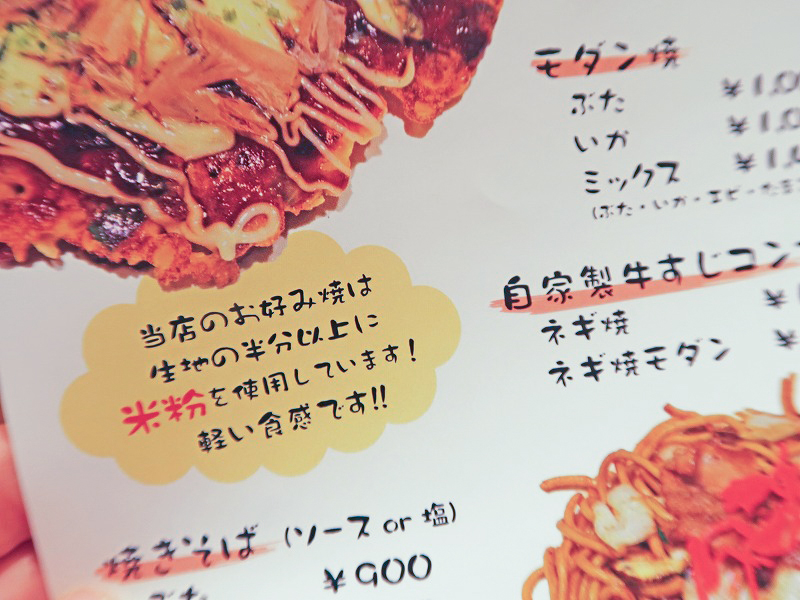 モダン焼
ぶた
いか
ミックス
(ぶた・いか・エビ・
自家製牛すじコン
ネギ焼
ネギ焼モダン
当店のお好み焼は
生地の半分以上に
米粉を使用しています!
軽い食感です!!
焼きそば (ソース or 塩)
ぶた
¥900